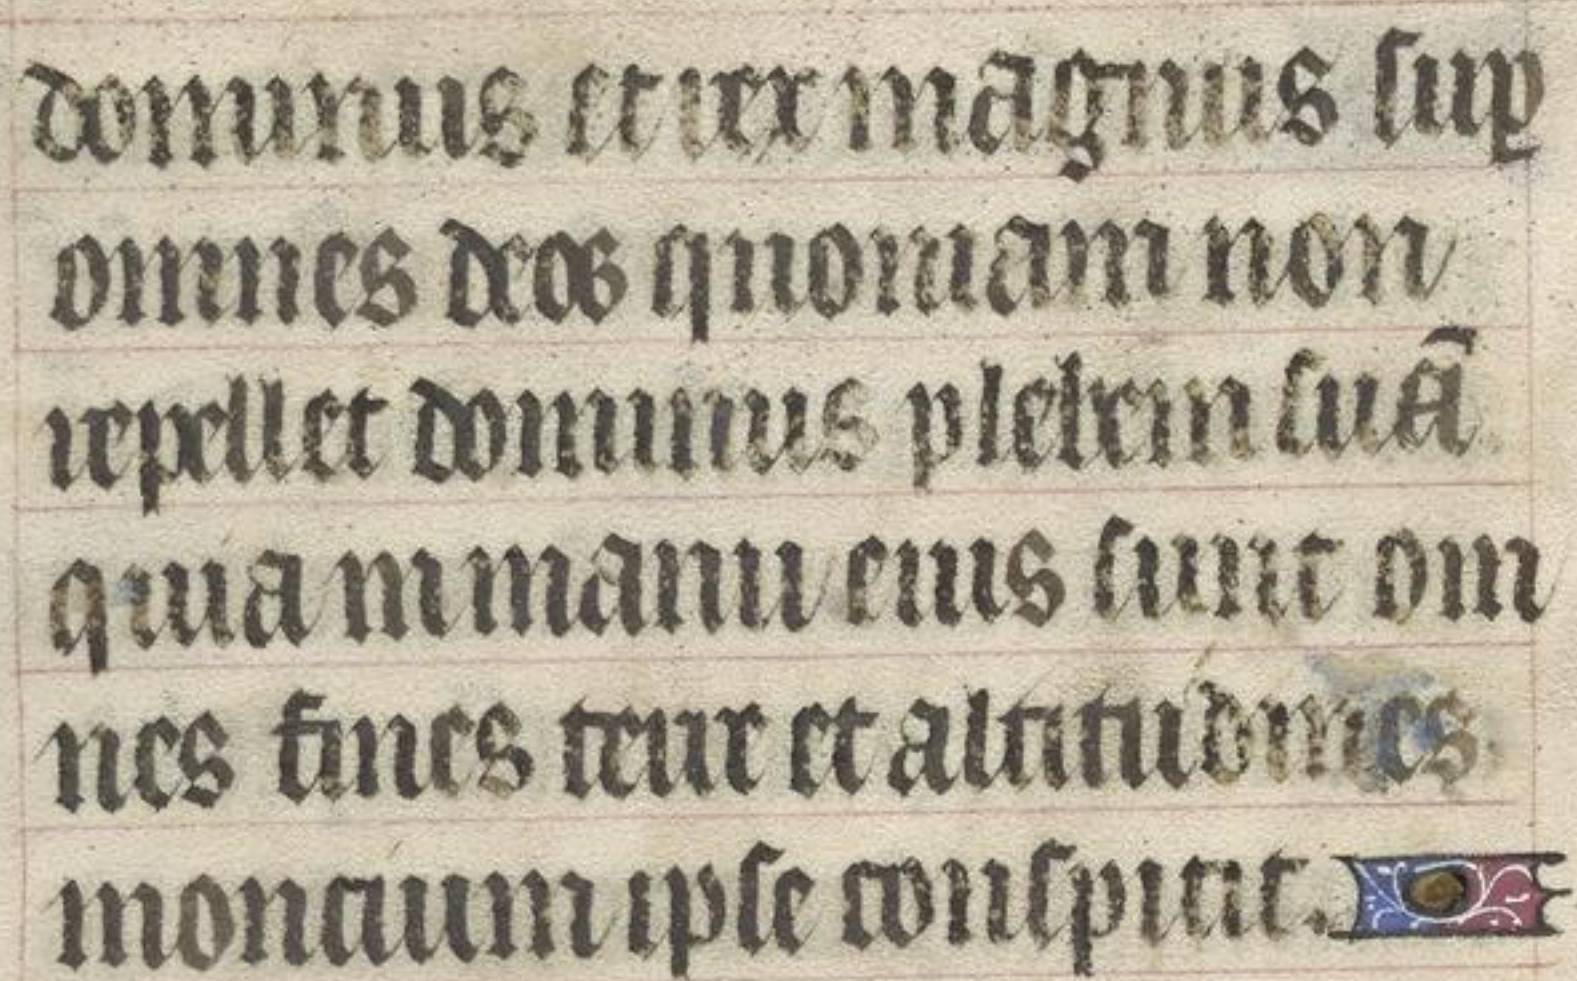 dominus et rex magnus suꝑ
omnes deos quoniam non
repellet dominus plebem suā
quia in manu eius sunt om
nes fines terre et altitudines
moncium ipse conspicit.